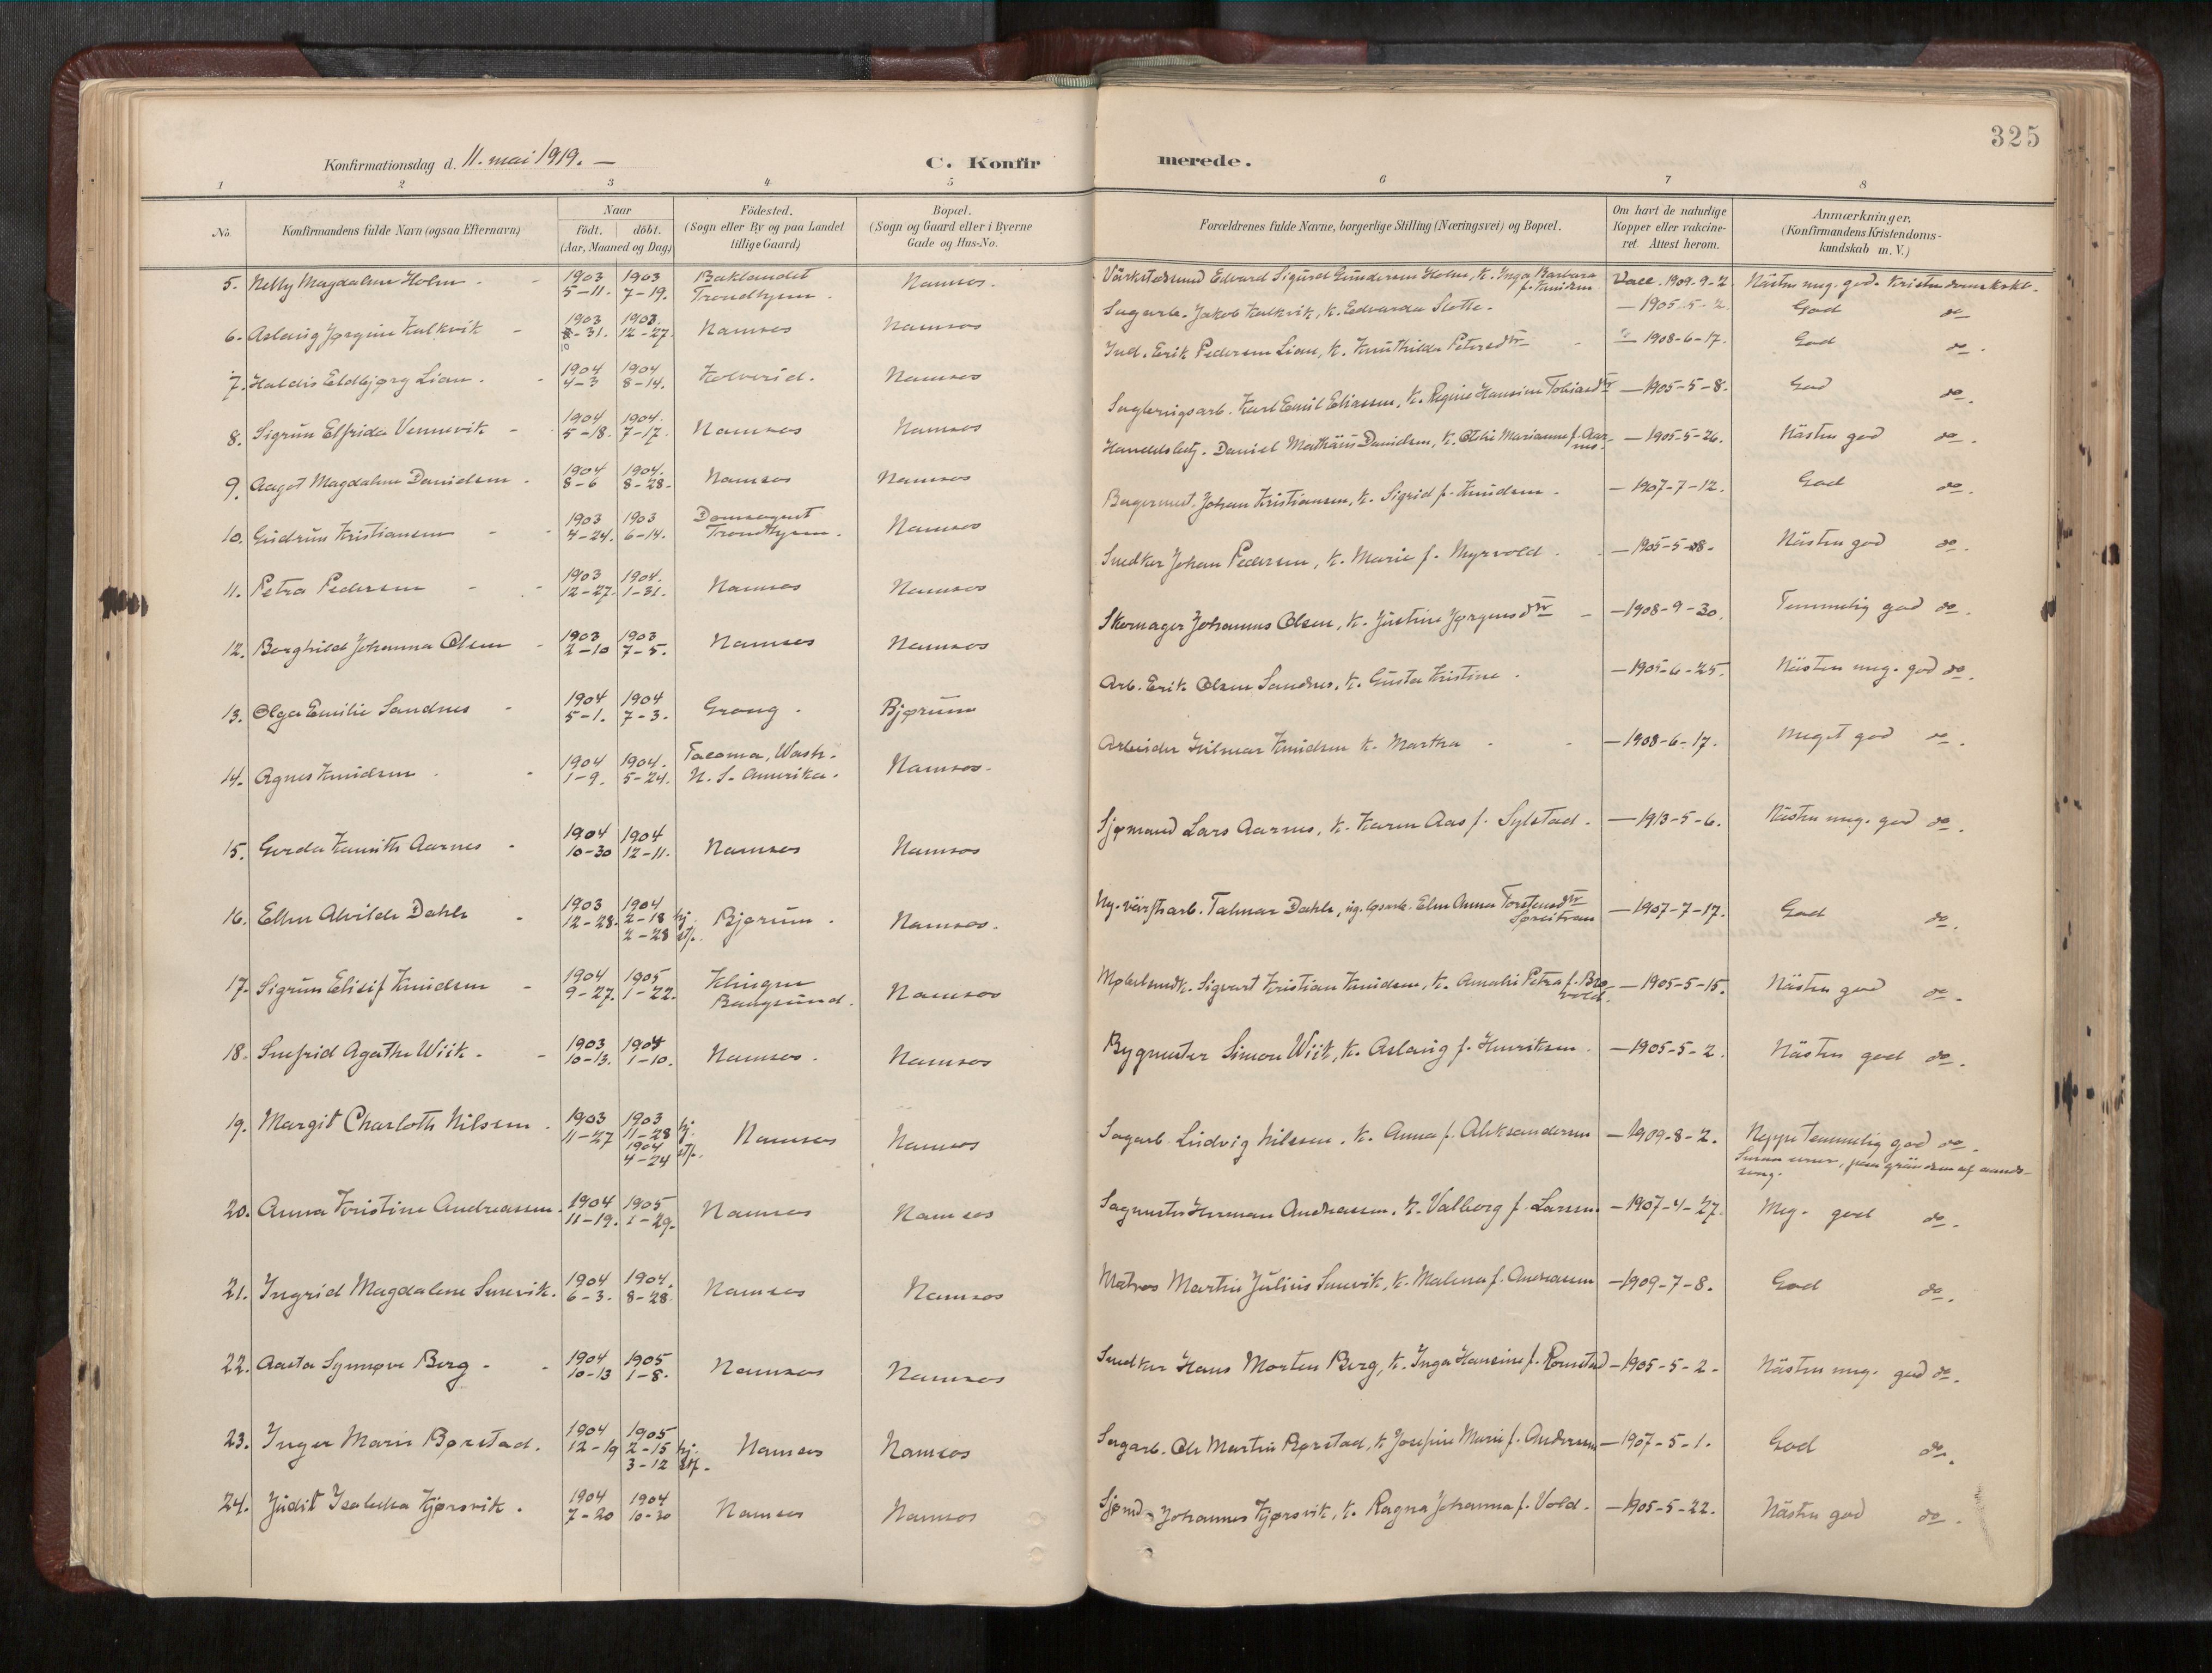 325
Konfirmationsdag d. 11. mai 1919. —
C. Konfirmerede.
1 2 3 4 5 6 7 8
No. Konfirmandens fulde Navn (ogsaa Efternavn) Naar födt. döbt. (Aar, Maaned og Dag) Födested. (Sogn eller By og paa Landet tillige Gaard) Bopæl. (Sogn og Gaard eller i Byerne Gade og Hus-No. Forældrenes fulde Navne, borgerlige Stilling (Næringsvei) og Bopæl. Om havt de naturlige Kopper eller vakcineret. Attest herom. Anmærkninger. (Konfirmandens Kristendomskundskab m. V.)
5. Nelly Magdalene Holm 1903 5-11. 1903 7-19. Baklandet Trondhjem. Namsos. Edvard Sigurd Gundersen Holm, k. Inga Barbara f. Knudsen Vacc. 1909-9-2 Nästen meg. god. Kristendomskskb.
6. Aslaug Jørgine Kalkvik 1903 10-31. 1903. 12-27. Namsos Namsos Sagarb. Jakob Kalkvik, k. Edvarda Slotte. — 1905-5-2. God do
7. Haldis Eldbjørg Lian. 1904 4-3 1904 8-14. Kolvereid. Namsos Ind. Erik Pedersen Lian, k. Petersdtr — 1908-6-17. God do.
8. Sigrun Elfrida Vennevik 1904 5-18. 1904. 7-17. Namsos Namsos Karl Emil Eliassen, k. Regine Hansine Tobiasdtr — 1905-5-8. God do.
9. Aagot Magdalene Danielsen. 1904 8-6 1904. 8-28. Namsos Namsos Handelsbetj. Daniel Mathäus Danielsen, k. Otelie Marianne f. Aarnes. — 1905-5-26. Nästen god do.
10. Gudrun Kristiansen 1903 4-24. 1903 6-14. Domsognet Trondhjem. Namsos Bagermest. Johan Kristiansen, k. Sigrid f. Knudsen. — 1907-7-12. God do.
11. Petra Pedersen 1903 12-27. 1904. 1-31. Namsos Namsos Snedker Johan Pedersen, k. Marie f. Myrvold. — 1905-5-28. Nästen god do.
12. Borghild Johanna Olsen 1903 2-10 1903 7-5. Namsos Namsos Skomager Johannes Olsen, k. Justine Jørgensdtr — 1908-9-30. Temmelig god do.
13. Olga Emilie Sandnes 1904 5-1. 1904 7-3. Grong. Bjørum Arb. Erik Olsen Sandnes, k. Gusta Kristine. — 1905-6-25. Nästen meg. god do.
14. Agnes Knudsen. 1904 1-9. 1904. 5-24. Tacoma, Wash. N. S. Amerika. Namsos. Arbeider Hilmar Knudsen k. Martha — 1908-6-17. Meget god do.
15. Gerda Aarnes 1904 10-30 1904 12-11. Namsos Namsos Sjømand Lars Aarnes, k. Karen Aas f. Sylstad. — 1913-5-6. Nästen meg. god do.
16. Ellen Alvilde Dahle 1903 12-28. 1904 2-18 hj. 2-28 stf. Bjørum. Namsos. Talmar Dahle, Elen Anna Torstensdtr — 1907-7-17. God do.
17. Sigrun Elisif Knudsen 1904 9-27. 1905 1-22. Klingen Bangsund. Namsos Møbelsnedk. Sigvart Kristian Knudsen, k. Amalie Petra f. — 1905-5-15. Nästen god do.
18. Snefrid Agathe Wiik. 1903 10-13. 1904 1-10. Namsos. Namsos Bygmester Simon Wiik, k. Aslaug f. Henriksen. — 1905-5-2. Nästen god do.
19. Margit Charloth Nilsen. 1903 11-27 1903 11-28 hj. 1904 4-24 stf. Namsos Namsos Sagarb. Ludvig Nilssen. k. Anna f. Aleksandersen — 1909-8-2. Neppe temmelig god do.
20. Anna Kristine Andreassen. 1904 11-19. 1905 1-29. Namsos Namsos Sagmester Herman Andreassen. k. Valborg f. Larsen — 1907-4-27. Meg. god do.
21. Ingrid Magdalene Smevik. 1904 6-3. 1904. 8-28 Namsos Namsos Matros Martin Julius Smevik, k. Malena f. Andreassen — 1909-7-8. God do.
22. Aasta Synnøve Berg 1904 10-13 1905 1-8. Namsos Namsos Snedker Hans Morten Berg, k. Inga Hansine f. — 1905-5-2. Nästen meg. god do.
23. Inger Marie Børstad. 1904 12-19 1905 2-15 hj. 3-12 stf. Namsos Namsos Sagarb. Ole Martin Børstad, k. Josefine Marie f. Andersen — 1907-5-1. God do.
24. Judit Isabella Kjørsvik. 1904 7-20 1904 10-30 Namsos Namsos Sjømd. Johannes Kjørsvik, k. Ragna Johanna f. Vold. — 1905-5-22. Nästen god do.